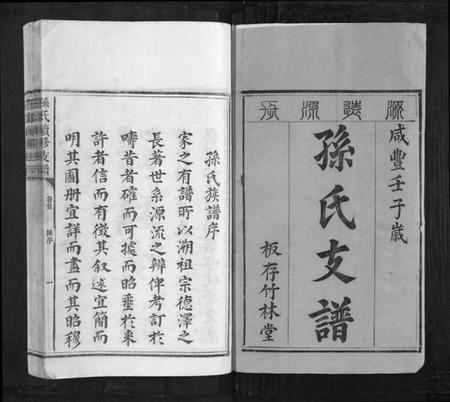 源遠流長
咸豐壬子歲
孫氏支譜
板存竹林堂
孫氏族譜序
家之有譜所以溯祖宗德澤之
長著世系源流之辨俾考訂於
疇昔者確而可據而昭垂於來
許者信而有徵其叙述宜簡而
明其圖冊宜詳而盡而其昭穆
孫氏續修支譜
卷首
一